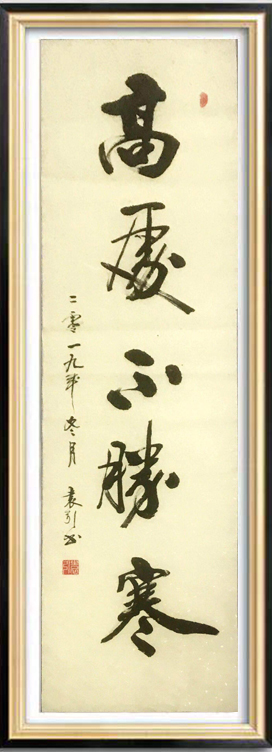 高處不勝寒
二零一九年冬月袁引书